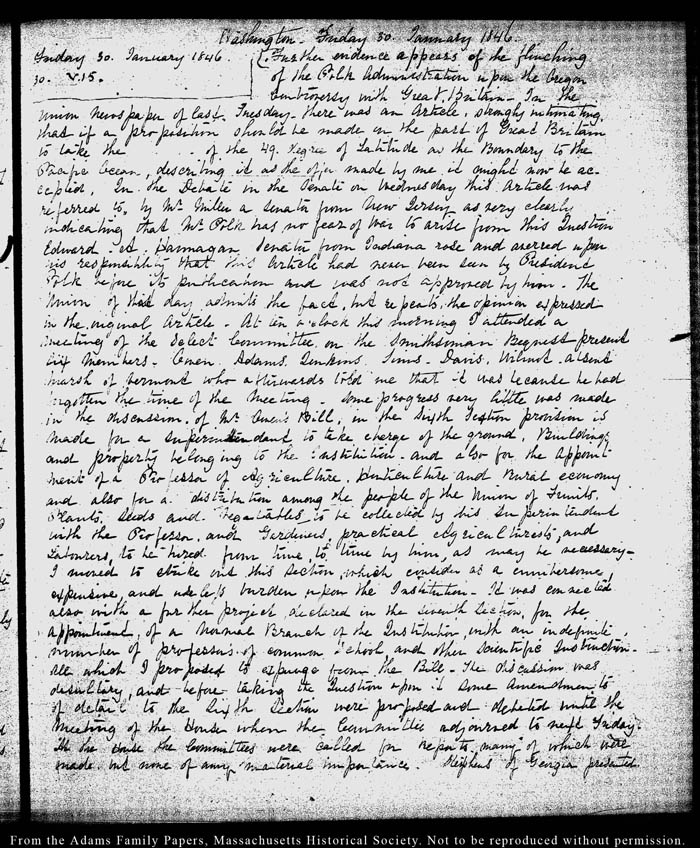 Washington. Friday 30. January 1846.
Friday 30. January 1846.
30. V.15.
Further evidence appears of the flinching
of the Polk Administration upon the Oregon
controversy with Great Britain - In the
Union Newspaper of last Tuesday there was an Article, strongly intimating,
that if a proposition should be made on the part of Great Britain
to take the - of the 49. degree of Latitude as the Boundary to the
Pacific Ocean, describing it as the offer made by me it might now be ac-
cepted. In the Debate in the Senate on Wednesday this Article was
referred to, by Mr Miller a Senator from New Jersey as very clearly
indicating that Mr Polk has no fear of War to arise from this Question
Edward A Hannagan Senator from Indiana rose and averred upon
his responsibility that this Article had never been seen by President
Polk before its publication and was not approved by him. The
Union of this day admits the fact, but repeats the opinion expressed
in the original Article - At ten o'clock this morning I attended a
meeting of the Select Committee on the Smithsonian Bequest present
six members - Owen. Adams. Jenkins. Sims. Davis. Wilmot. absent
Marsh of Vermont who afterwards told me that it was because he had
forgotten the time of the Meeting - Some progress very little was made
in the discussion of Mr Owen's Bill, in the Sixth Section provision is
made for a Superintendant, to take charge of the ground, Buildings
and property belonging to the Institution - and also for the Appoint-
ment of a Professor of Agriculture. Horticulture and Rural economy
and also for a distribution among the people of the Union of Fruits,
Plants, Seeds and Vegetables, to be collected by his Superintendent
with the Professor, and Gardeners, practical Agriculturests, and
Labourers, to be hired from time, to time by him, as may be necessary -
I moved to strike out this Section, which consider as a cumbersome,
expensive, and useless burden upon the Institution - It was connected
also with a further project declared in the seventh Section, for the
appointment, of a Normal Branch of the Institution, with an indefinite
number of professors of common School and other Scientific Instruction -
all which I proposed to expunge from the Bill - The discussion was
desultory, and before taking the Question upon it some amendments
of detail to the Sixth Section were proposed and debated until the
Meeting of the House when the Committee adjourned to next Friday.
In the House the Committees were called for reports, many of which were
made but none of any material importance. Stephens of Georgia presented
From the Adams Family Papers, Massachusetts Historical Society. Not to be reproduced without permission.